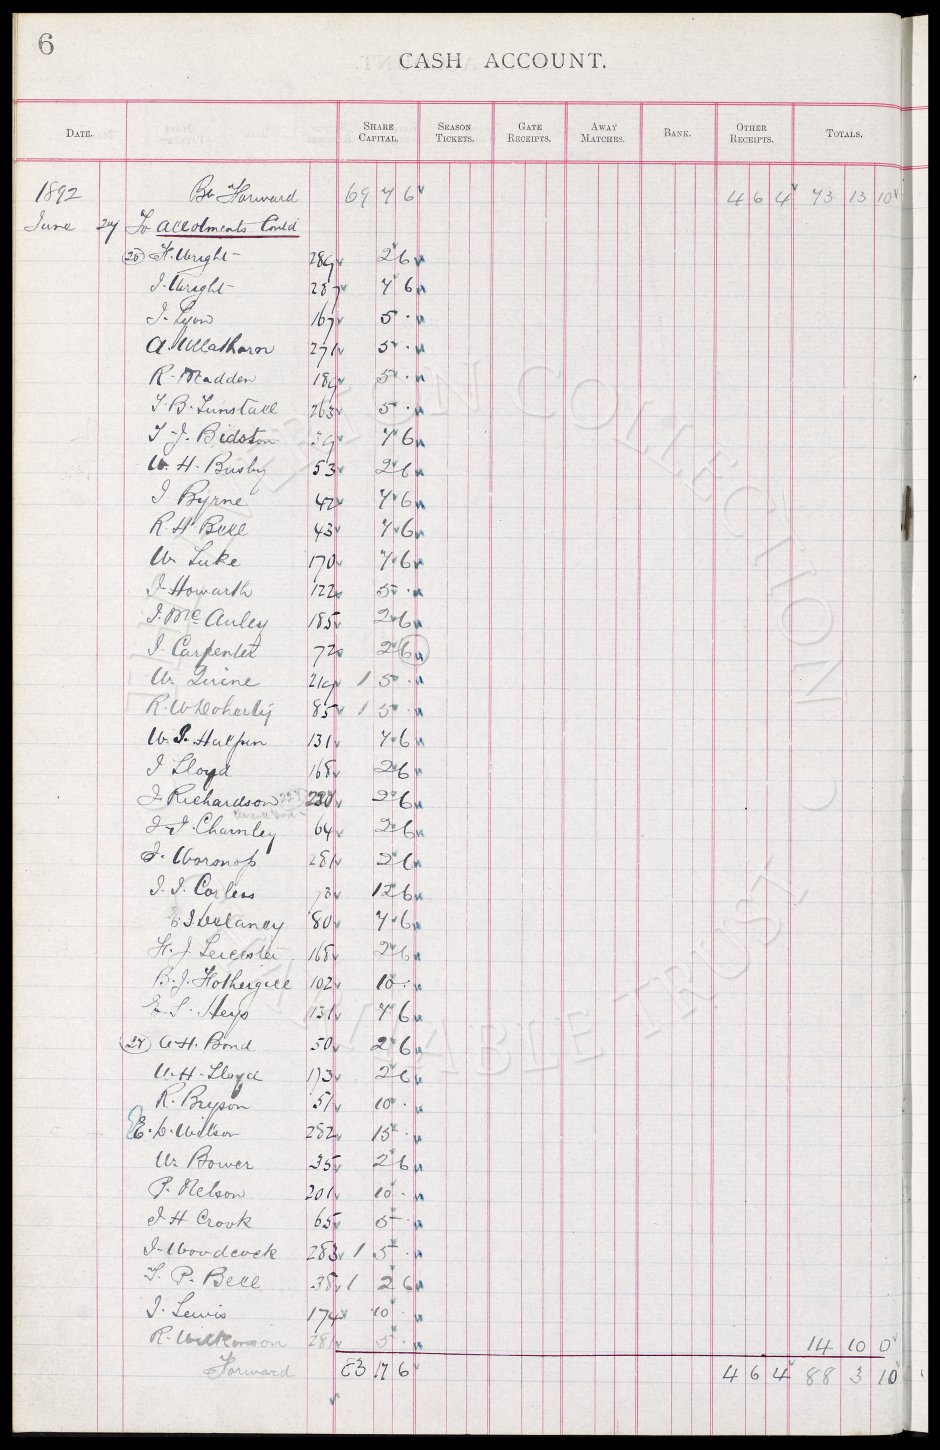 6
CASH ACCOUNT.
DATE. SHARE CAPITAL. SEASON TICKETS. GATE RECEIPTS. AWAY MATCHES. BANK. OTHER RECEIPTS. TOTALS.
1892 Bt Forward 69 7 6 4 6 4 73 13 10
June 24 To allotments Contd
H. Wright 289 2 6
J. Wright 287 7 6
J. Lyon 167 5 .
A. Ullathorn 271 5 .
R. Madden 189 5 .
T. B. Tunstall 263 5 .
T. J. Bidston 39 7 6
W. H. Busby 53 2 6
J Byrne 42 7 6
R. H. Bell 43 7 6
W. Luke 170 7 6
J. Howarth 122 5 .
J. McAuley 185 2 6
J. Carpenter 72 2 6
W. 219 1 5 .
R. W Doherty 85 1 5 .
W. J. Halpin 131 7 6
J Lloyd 168 2 6
J. Richardson 2 6
J. J. Charnley 64 2 6
J. Worsnop 281 2 6
J. J. Corless 73 12 6
Delaney 80 7 6
H. J. Leicester 168 2 6
B. J. Fothergill 102 10 .
Heys 131 7 6
Bond 50 2 6
W. H. Lloyd 173 2 6
R. Bryson 51 10 .
Wilson 282 15 .
W. Bower 35 2 6
P. Nelson 201 10 .
J. H Crook 65 5 .
J. Woodcock 283 1 5 .
T. P. Bell 38 1 2 6
J. Lewis 174 10 .
R. Wilkinson 281 5 . 14 10 0
Forward 83 17 6 4 6 4 88 3 10
EVERTON COLLECTION
CHARITABLE TRUST